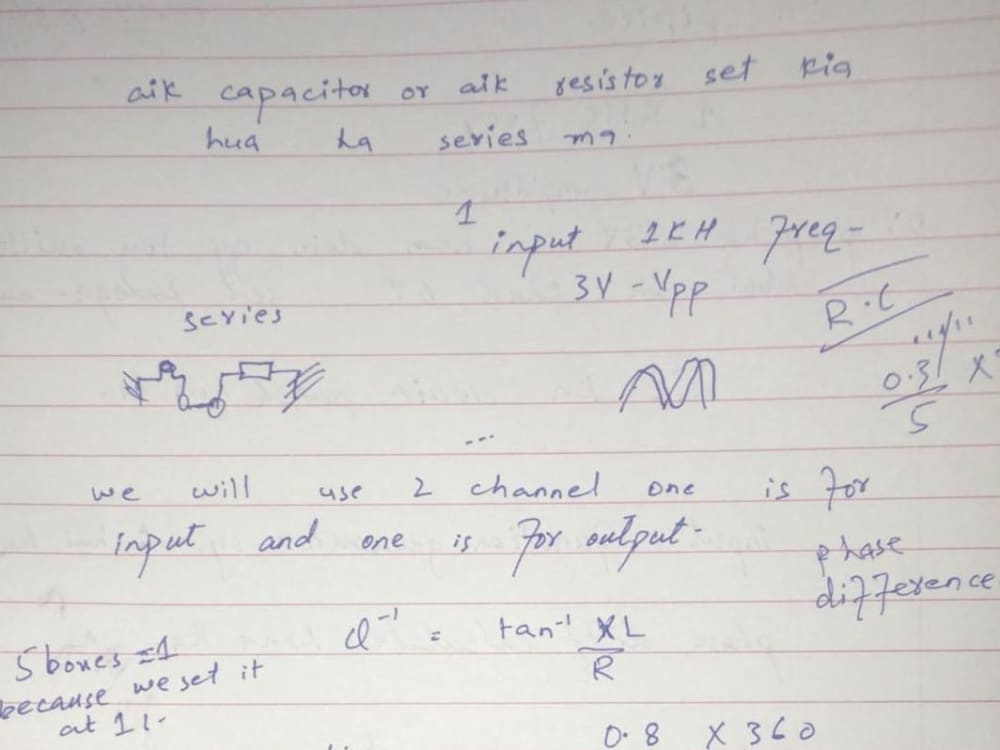 aik capacitor or aik resistor set kia
hua ha series ma.
1
input 1KH freq-
3V - Vpp
R.C
series
0.3 X
5
we will use 2 channel one is for
input and one is for output.
phase
difference
5 boxes = 1
because we set it
at 1
tan-1 XL
R
0.8 X 360